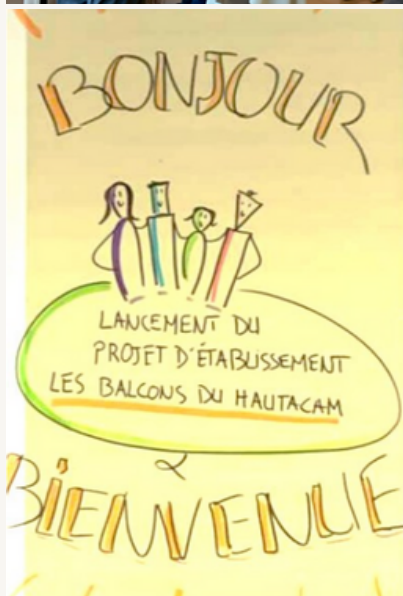 BONJOUR
LANCEMENT DU
PROJET D'ÉTABLISSEMENT
LES BALCONS DU HAUTACAM
&
BIENVENUE